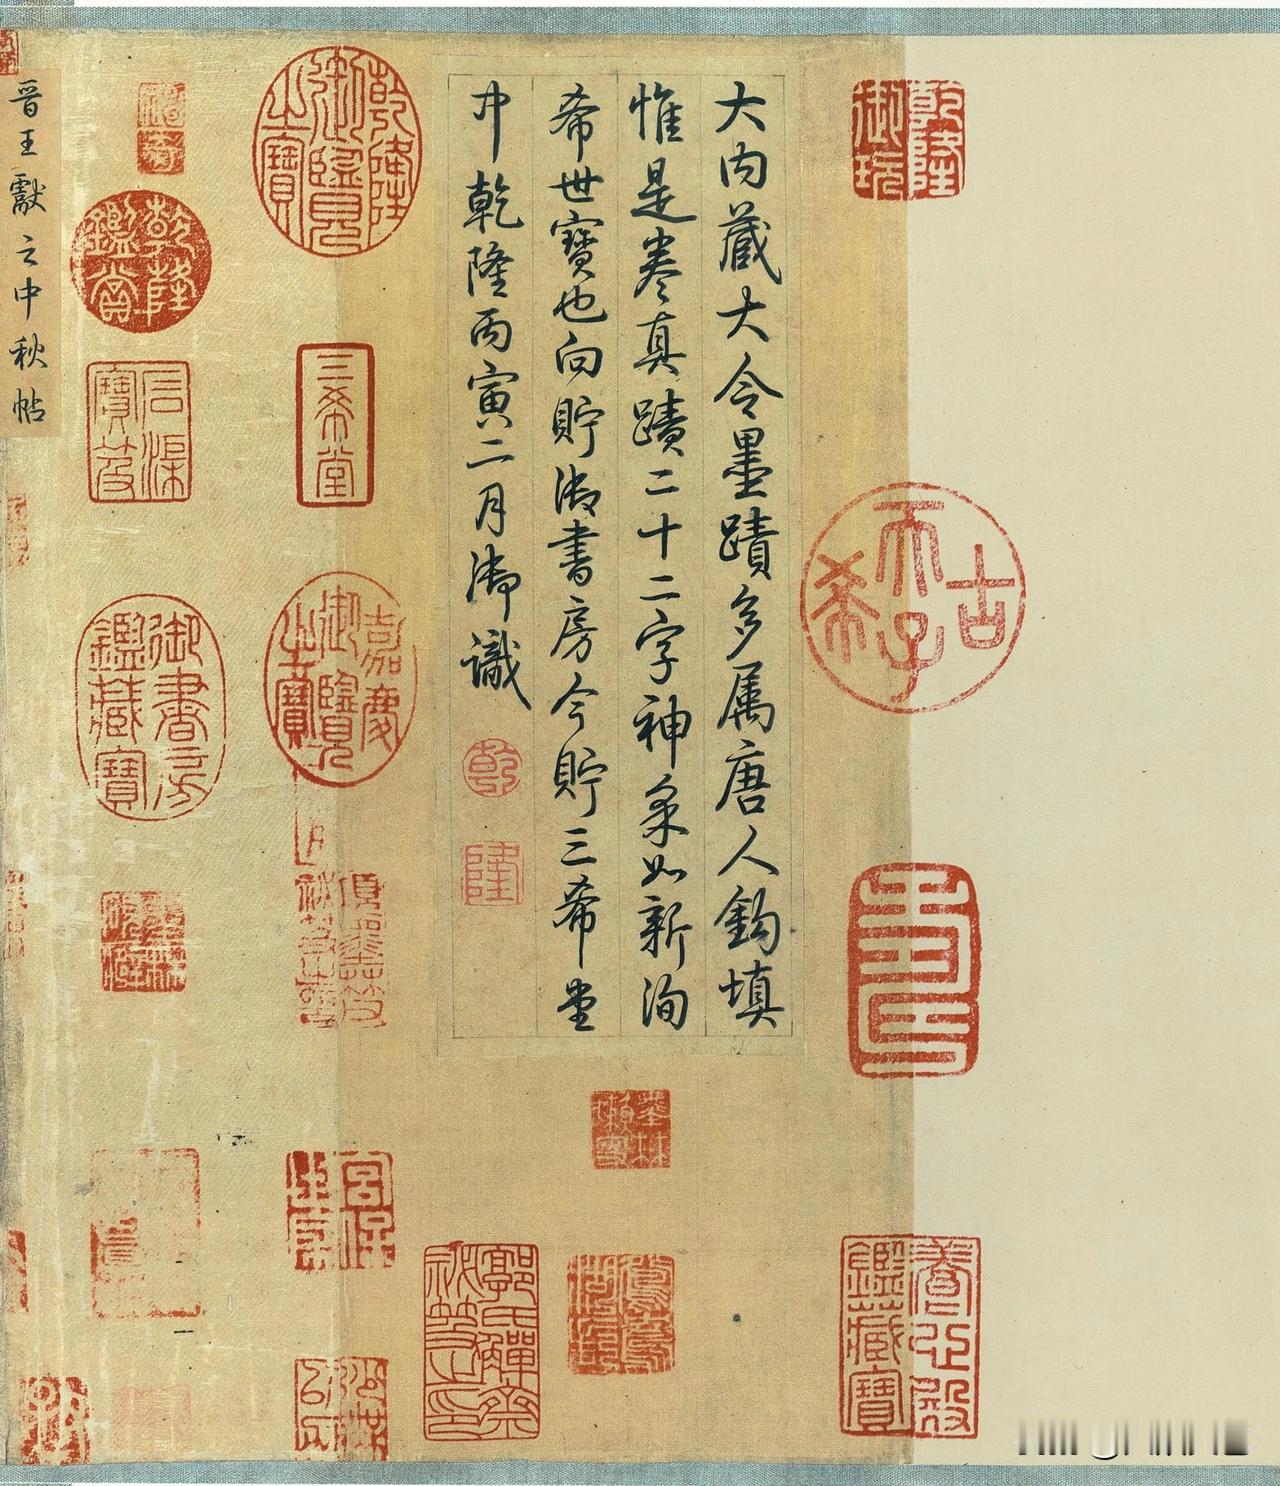 大内藏大令墨蹟多属唐人鈎填
惟是卷真蹟二十二字神采如新洵
希世寶也向貯御書房今貯三希堂
中乾隆丙寅二月御識
乾
隆
晋王獻之中秋帖
乾隆御玩
古希天子
壽
養心殿鑑藏寶
乾隆御覽之寶
三希堂
嘉慶御覽之寶
乾隆鑑賞
石渠寶笈
御書房鑑藏寶
宮保世家
郭氏觶齋祕笈之印